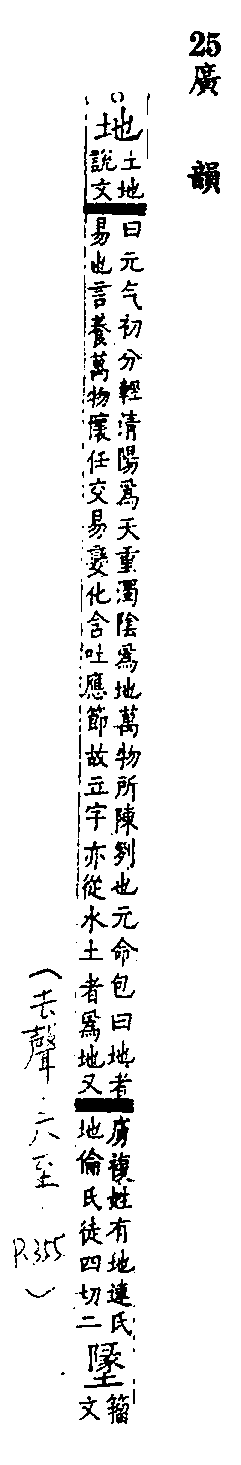 25 廣韻
地
土地
說文
曰元气初分輕清陽爲天重濁陰爲地萬物所陳列也元命包曰地者
易也言養萬物懷任交易變化含吐應節故立字亦從水土者爲地又
虜複姓有地連氏
地倫氏徒四切二
墬
籀
文
(去聲.六至. P.355)